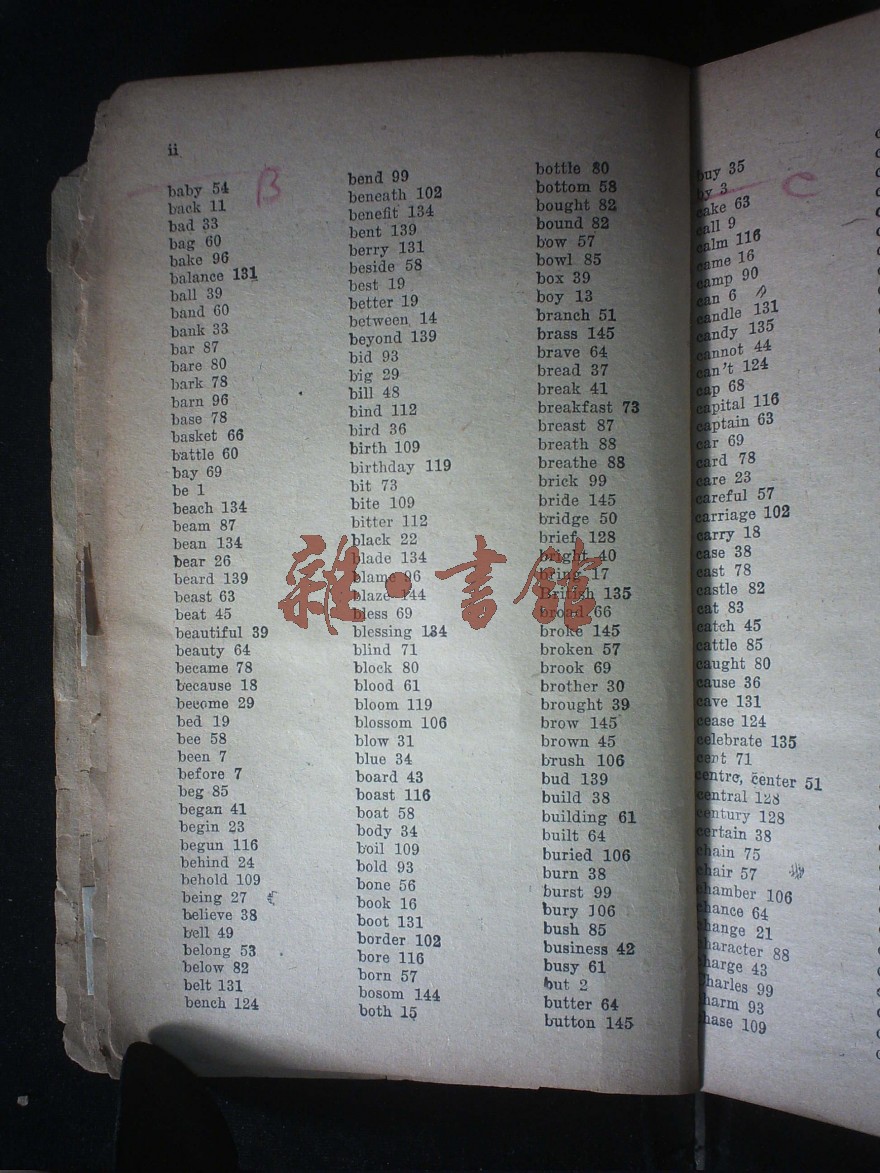 ii
B
baby 54
back 11
bad 33
bag 60
bake 96
balance 131
ball 39
band 60
bank 33
bar 87
bare 80
bark 78
barn 96
base 78
basket 66
battle 60
bay 69
be 1
beach 134
beam 87
bean 134
bear 26
beard 139
beast 63
beat 45
beautiful 39
beauty 64
became 78
because 18
become 29
bed 19
bee 58
been 7
before 7
beg 85
began 41
begin 23
begun 116
behind 24
behold 109
being 27
believe 38
bell 49
belong 53
below 82
belt 131
bench 124
bend 99
beneath 102
benefit 134
bent 139
berry 131
beside 58
best 19
better 19
between 14
beyond 139
bid 93
big 29
bill 48
bind 112
bird 36
birth 109
birthday 119
bit 73
bite 109
bitter 112
black 22
blade 134
blame 96
blaze 144
bless 69
blessing 134
blind 71
block 80
blood 61
bloom 119
blossom 106
blow 31
blue 34
board 43
boast 116
boat 58
body 34
boil 109
bold 93
bone 56
book 16
boot 131
border 102
bore 116
born 57
bosom 144
both 15
bottle 80
bottom 58
bought 82
bound 82
bow 57
bowl 85
box 39
boy 13
branch 51
brass 145
brave 64
bread 37
break 41
breakfast 73
breast 87
breath 88
breathe 88
brick 99
bride 145
bridge 50
brief 128
bright 40
bring 17
British 135
broad 66
broke 145
broken 57
brook 69
brother 30
brought 39
brow 145
brown 45
brush 106
bud 139
build 38
building 61
built 64
buried 106
burn 38
burst 99
bury 106
bush 85
business 42
busy 61
but 2
butter 64
button 145
buy 35
by 3
C
cake 63
call 9
calm 116
came 16
camp 90
can 6
candle 131
candy 135
cannot 44
can't 124
cap 68
capital 116
captain 63
car 69
card 78
care 23
careful 57
carriage 102
carry 18
case 38
cast 78
castle 82
cat 83
catch 45
cattle 85
caught 80
cause 36
cave 131
cease 124
celebrate 135
cent 71
centre, center 51
central 128
century 128
certain 38
chain 75
chair 57
chamber 106
chance 64
change 21
character 88
charge 43
Charles 99
charm 93
chase 109
雜·書館